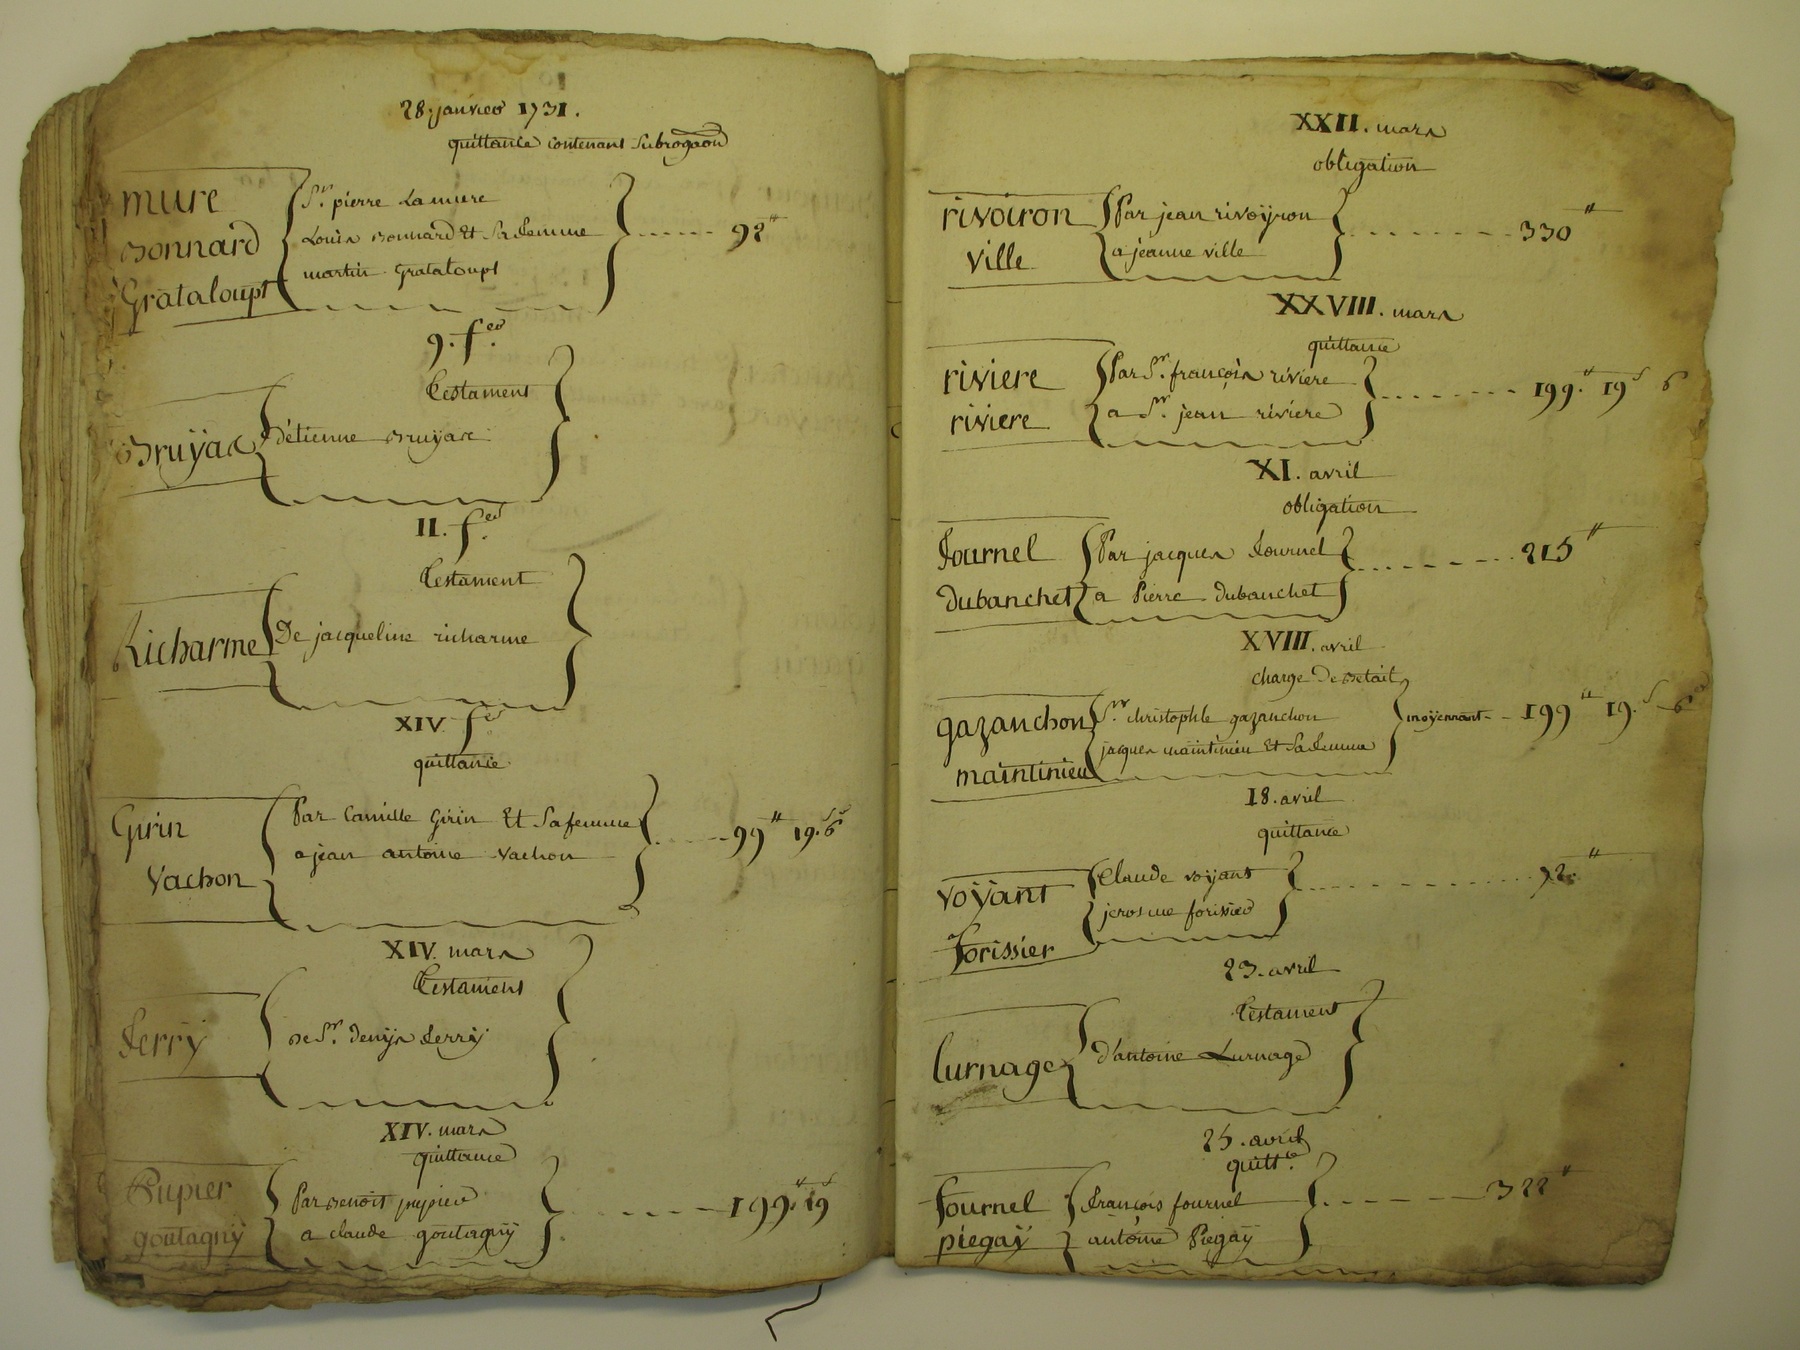 28. janvier 1731.
quittance contenant Subrogaon
mure
Bonnard
Grataloupt
Sr. pierre Lamure
Louis Bonnard Et Sa femme
martin Grataloupt
92 tt
9. fer.
Testament
Bruÿas
d'étienne Bruÿas
II. fer.
Testament
Richarme
De jacqueline richarme
XIV. fer.
quittance
Girin
Vachon
Par Camille Girin Et Sa femme
a jean antoine Vachon
99 tt 19. s 6
XIV. mars
Testament
ferrÿ
de Sr. Denÿs ferrÿ
XIV. mars
quittance
Pupier
goutagnÿ
Par Benoit pupier
a claude goutagnÿ
199. tt 19 s
XXII. mars
obligation
rivoiron
ville
Par jean rivoÿron
a jeanne ville
330 tt
XXVIII. mars
quittance
riviere
riviere
Par Sr. françois riviere
a Sr. jean riviere
199. tt 19 s 6
XI. avril
obligation
fournel
dubanchet
Par jacques fournel
a Pierre dubanchet
215 tt
XVIII. avril
charge De Betail
gazanchon
maintinieu
Sr. christophle gazanchon
jacques maintinieu Et Sa femme
moÿennant 199 tt 19. s 6 d
18. avril
quittance
voÿant
forissier
Claude voÿant
jerosme forissier
72. tt
23. avril
Testament
lurnage
d'antoine Lurnage
25. avril
quitt.ce
fournel
piegaÿ
françois fournel
antoine Piegaÿ
322 tt